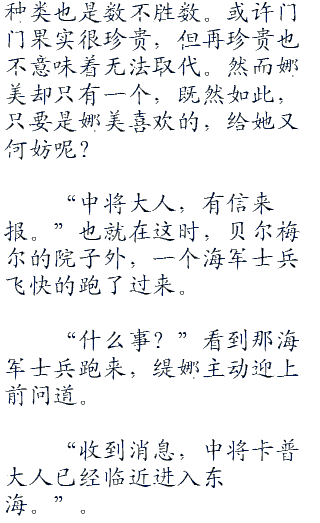 种类也是数不胜数。或许门
门果实很珍贵，但再珍贵也
不意味着无法取代。然而娜
美却只有一个，既然如此，
只要是娜美喜欢的，给她又
何妨呢？
“中将大人，有信来
报。”也就在这时，贝尔梅
尔的院子外，一个海军士兵
飞快的跑了过来。
“什么事？”看到那海
军士兵跑来，缇娜主动迎上
前问道。
“收到消息，中将卡普
大人已经临近进入东
海。”。